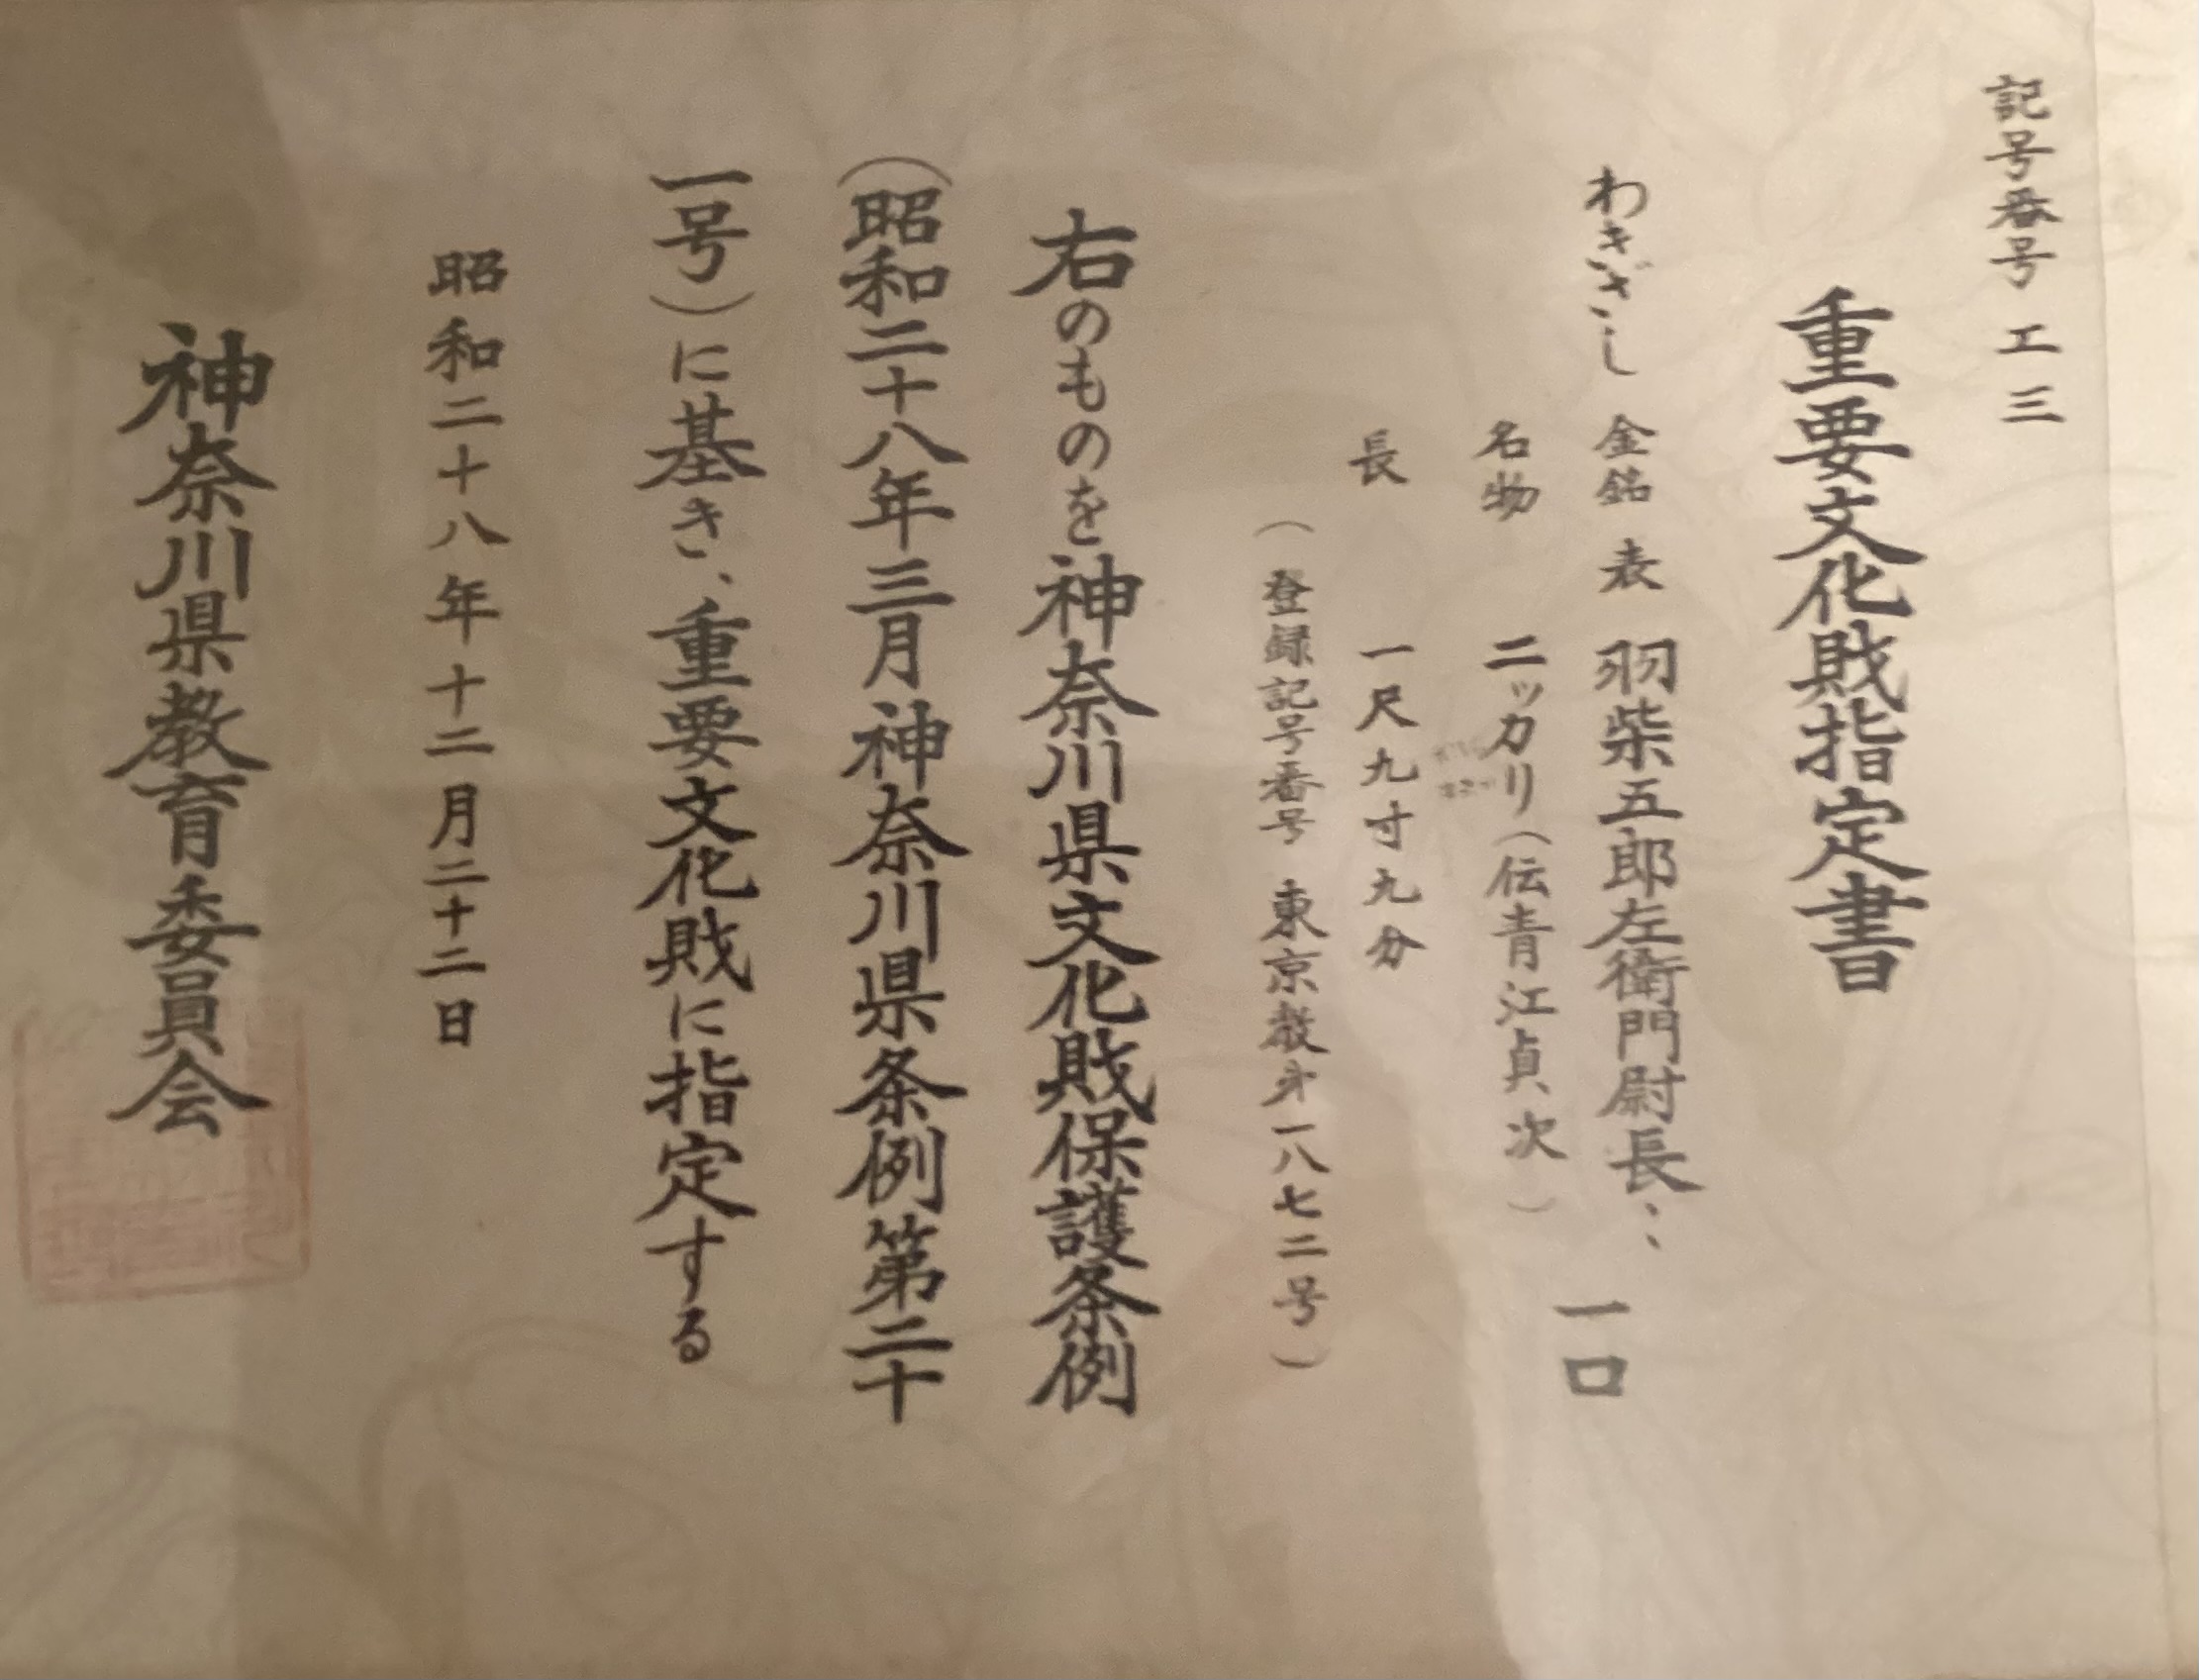 記号番号 工三
重要文化財指定書
わきざし 金銘 表 羽柴五郎左衛門尉長、、 一口
名物 ニッカリ(伝青江貞次)
長 一尺九寸九分
(登録記号番号 東京教第一八七二号)
右のものを神奈川県文化財保護条例
(昭和二十八年三月神奈川県条例第二十
一号)に基き、重要文化財に指定する
昭和二十八年十二月二十二日
神奈川県教育委員会